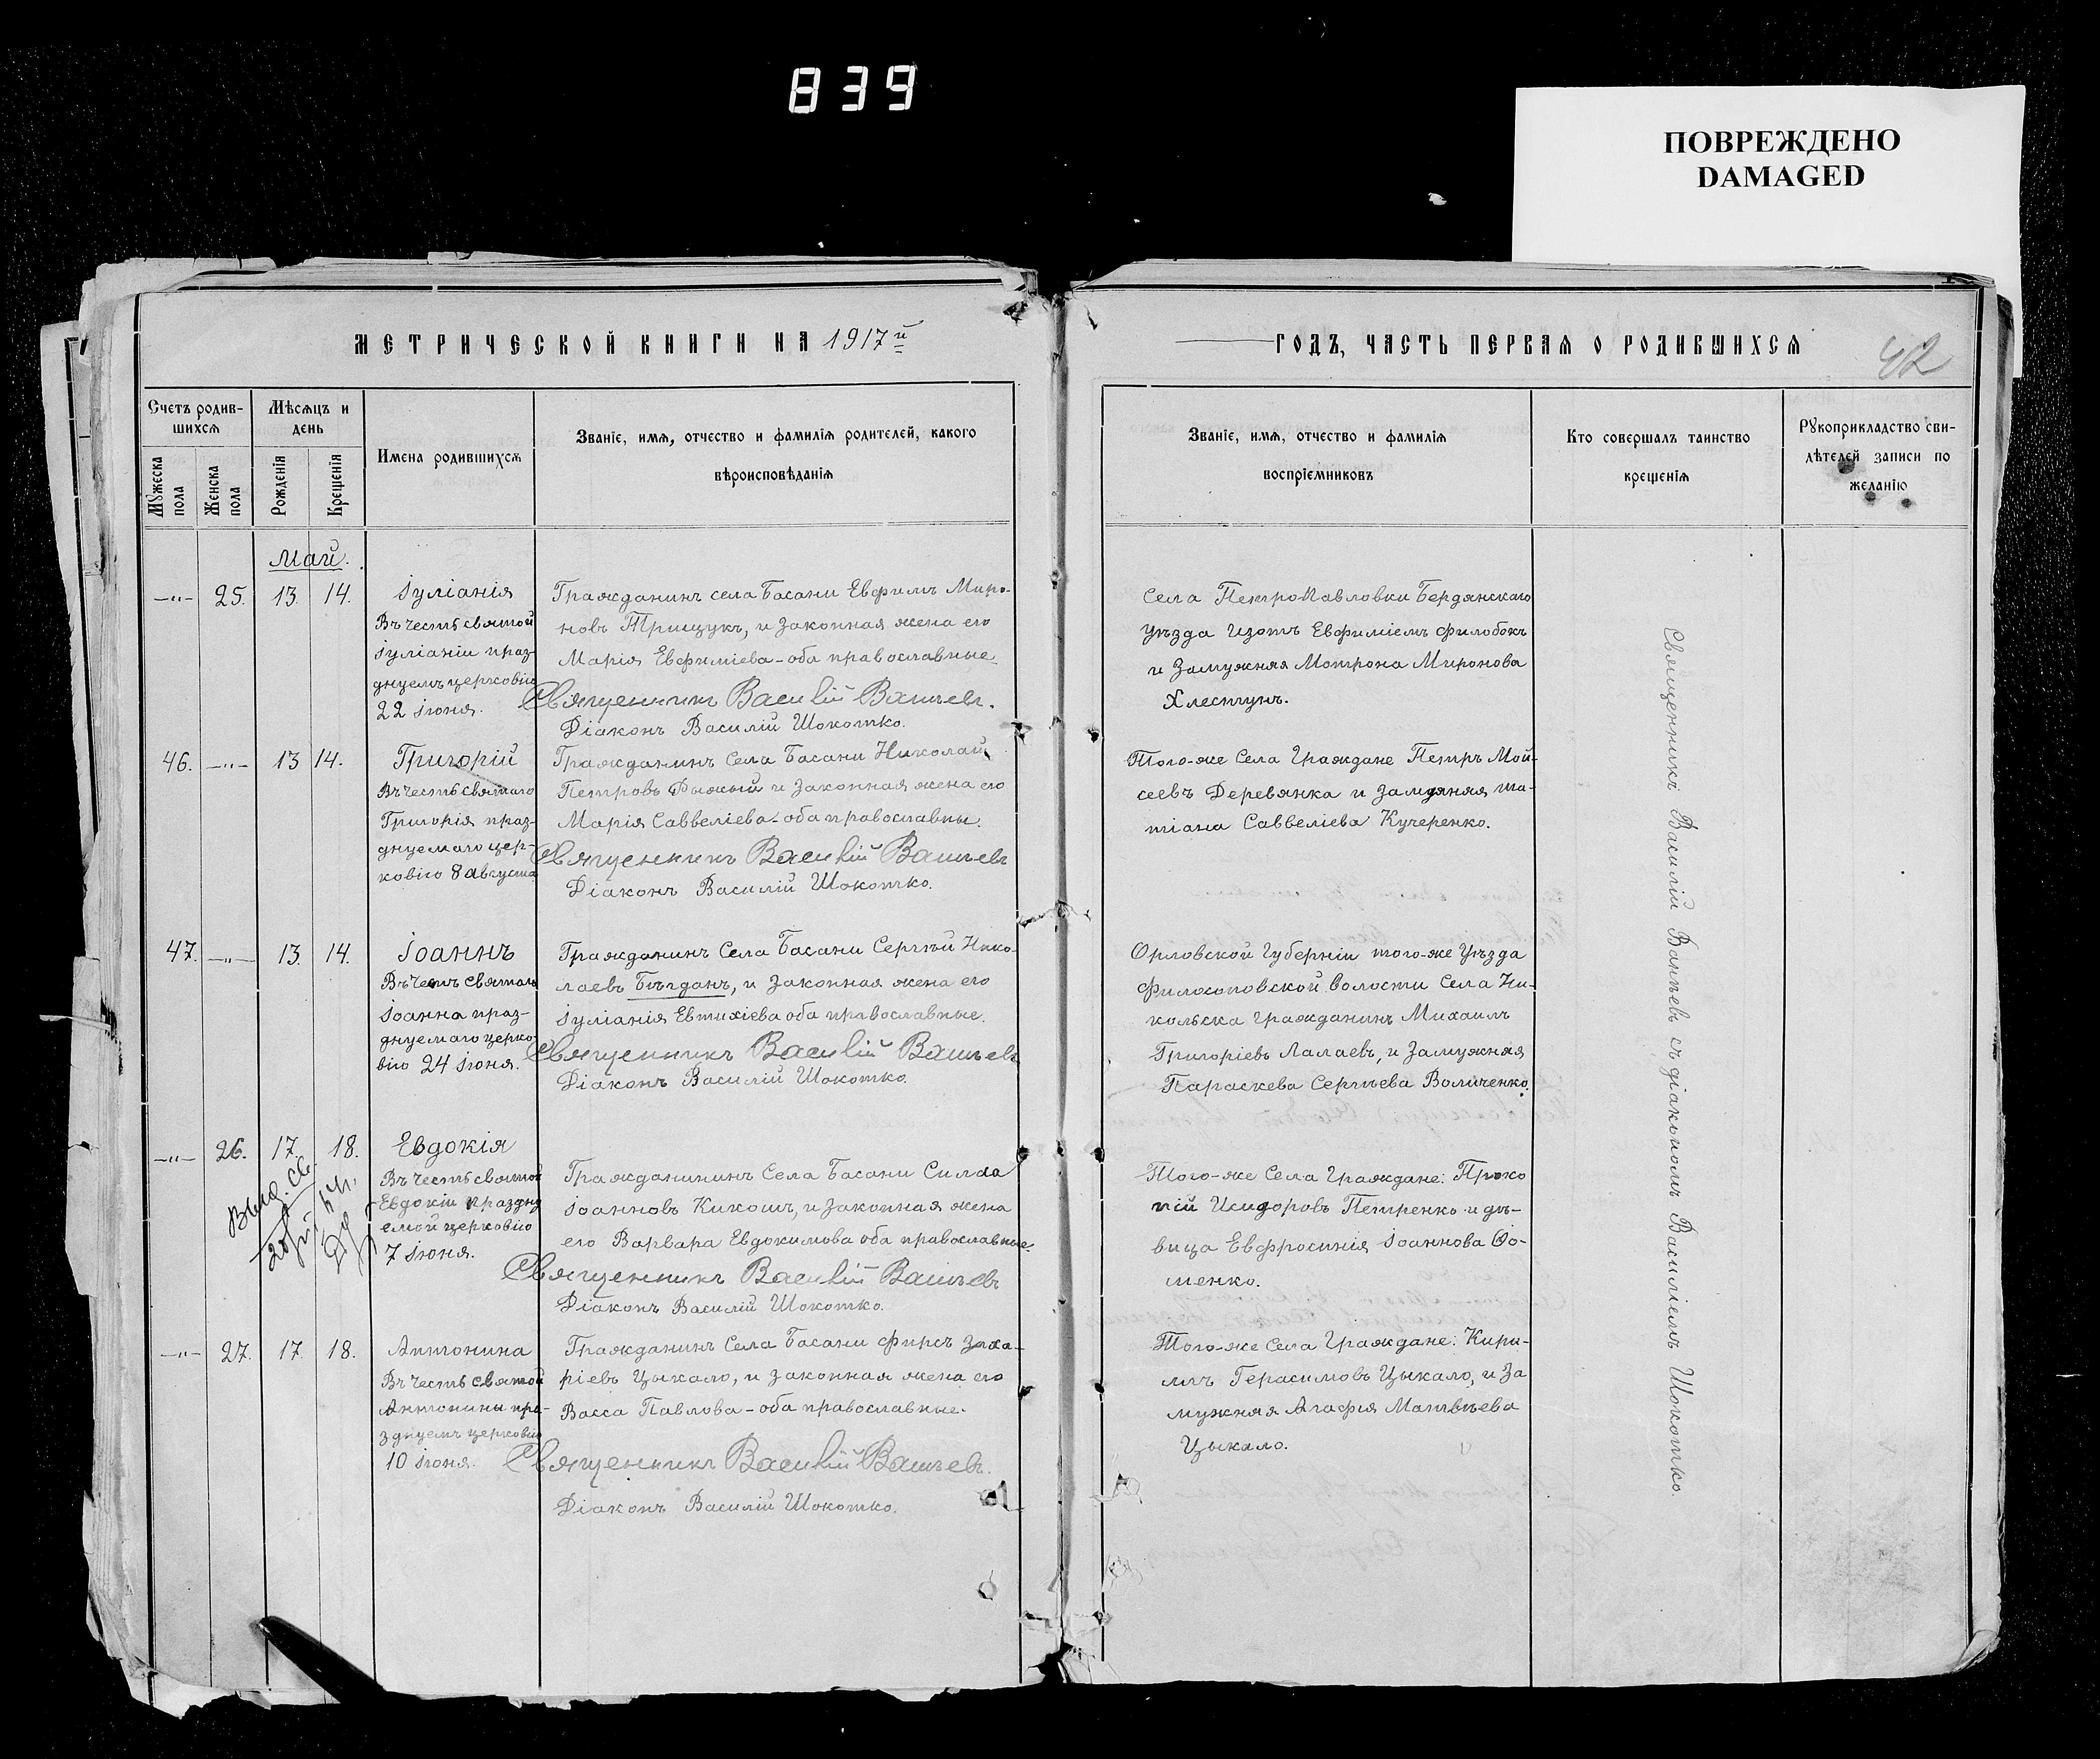 839
ПОВРЕЖДЕНО
DAMAGED
МЕТРИЧЕСКОЙ КНИГИ НА 1917й
ГОДЪ, ЧАСТЬ ПЕРВАЯ О РОДИВШИХСЯ
42
Счетъ родив-
шихся
Мѣсяцъ и
день
Мужеска
пола
Женска
пола
Рожденія
Крещенія
Имена родившихся
Званіе, имя, отчество и фамилія родителей, какого
вѣроисповѣданія
Званіе, имя, отчество и фамилія
воспріемниковъ
Кто совершалъ таинство
крещенія
Рукоприкладство сви-
дѣтелей записи по
желанію
Май.
—„— 25. 13. 14.
Іуліанія
Въ честь святой
Іуліаніи праз-
днуемъ церковію
22 Іюня.
Гражданинъ села Басани Евфимъ Миро-
новъ Трищукъ, и законная жена его
Марія Евфиміева - оба православные.
Священникъ Василій Ваньевъ.
Діаконъ Василій Шокотко.
Села ПетроПавловки Бердянскаго
Уѣзда Изотъ Евфиміемъ Филобокъ
и Замужняя Мотрона Миронова
Хлестунъ.
46. —„— 13 14.
Григорій
Въ честь святаго
Григорія праз-
днуемаго цер-
ковію 8 августа
Гражданинъ Села Басани Николай
Петровъ Рыжый и законная жена его
Марія Саввеліева - оба православны.
Священникъ Василій Ваньевъ
Діаконъ Василій Шокотко.
Того-же Села Граждане Петръ Мой-
сеевъ Деревянка и Замужняя Та-
тіана Саввеліева Кучеренко.
47. —„— 13. 14.
Іоаннъ
Въ честь святаго
Іоанна праз-
днуемаго церко
вію 24 Іюня.
Гражданинъ Села Басани Сергѣй Нико-
лаевъ Бѣгданъ, и законная жена его
Іуліанія Евтихіева оба православные.
Священникъ Василій Ваньевъ
Діаконъ Василій Шокотко.
Орловской Губерніи того-же Уѣзда
Филосоповской волости Села Ни-
кольска Гражданинъ Михаилъ
Григоріевъ Лалаевъ, и Замужняя
Параскева Сергѣева Воличенко.
—„— 26. 17. 18.
Выд. св.
Евдокія
Въ честь святой
Евдокіи празднд
емой церковію
7 Іюня.
Гражданининъ Села Басани Силаа
Іоанновъ Кикошъ, и законная жена
его Варвара Евдокимова оба православные.
Священникъ Василій Ваньевъ
Діаконъ Василій Шокотко.
Того-же Села Граждане: Проко
пій Исидоровъ Петренко и дѣ-
вица Евфросинія Іоаннова Ѳо-
менко.
—„— 27. 17. 18.
Антонина
Въ честь святой
Антонины пра-
зднуемъ церковію
10 Іюня.
Гражданинъ Села Басани Фирсъ Заха-
ріевъ Цыкало, и законная жена его
Васса Павлова - оба православные.
Священникъ Василій Ваньевъ.
Діаконъ Василій Шокотко.
Того-же Села Граждане: Кири-
лъ Герасимовъ Цыкало, и За
мужняя Агафія Матвѣева
Цыкало.
Священникъ Василій Ваньевъ съ діакономъ Василіемъ Шокотко.